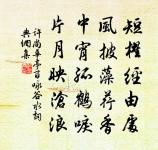 短櫂經由處
風披藻荇香
中宵孤鶴唳
片月映滄浪
許尚華亭百詠谷水詞
典個集